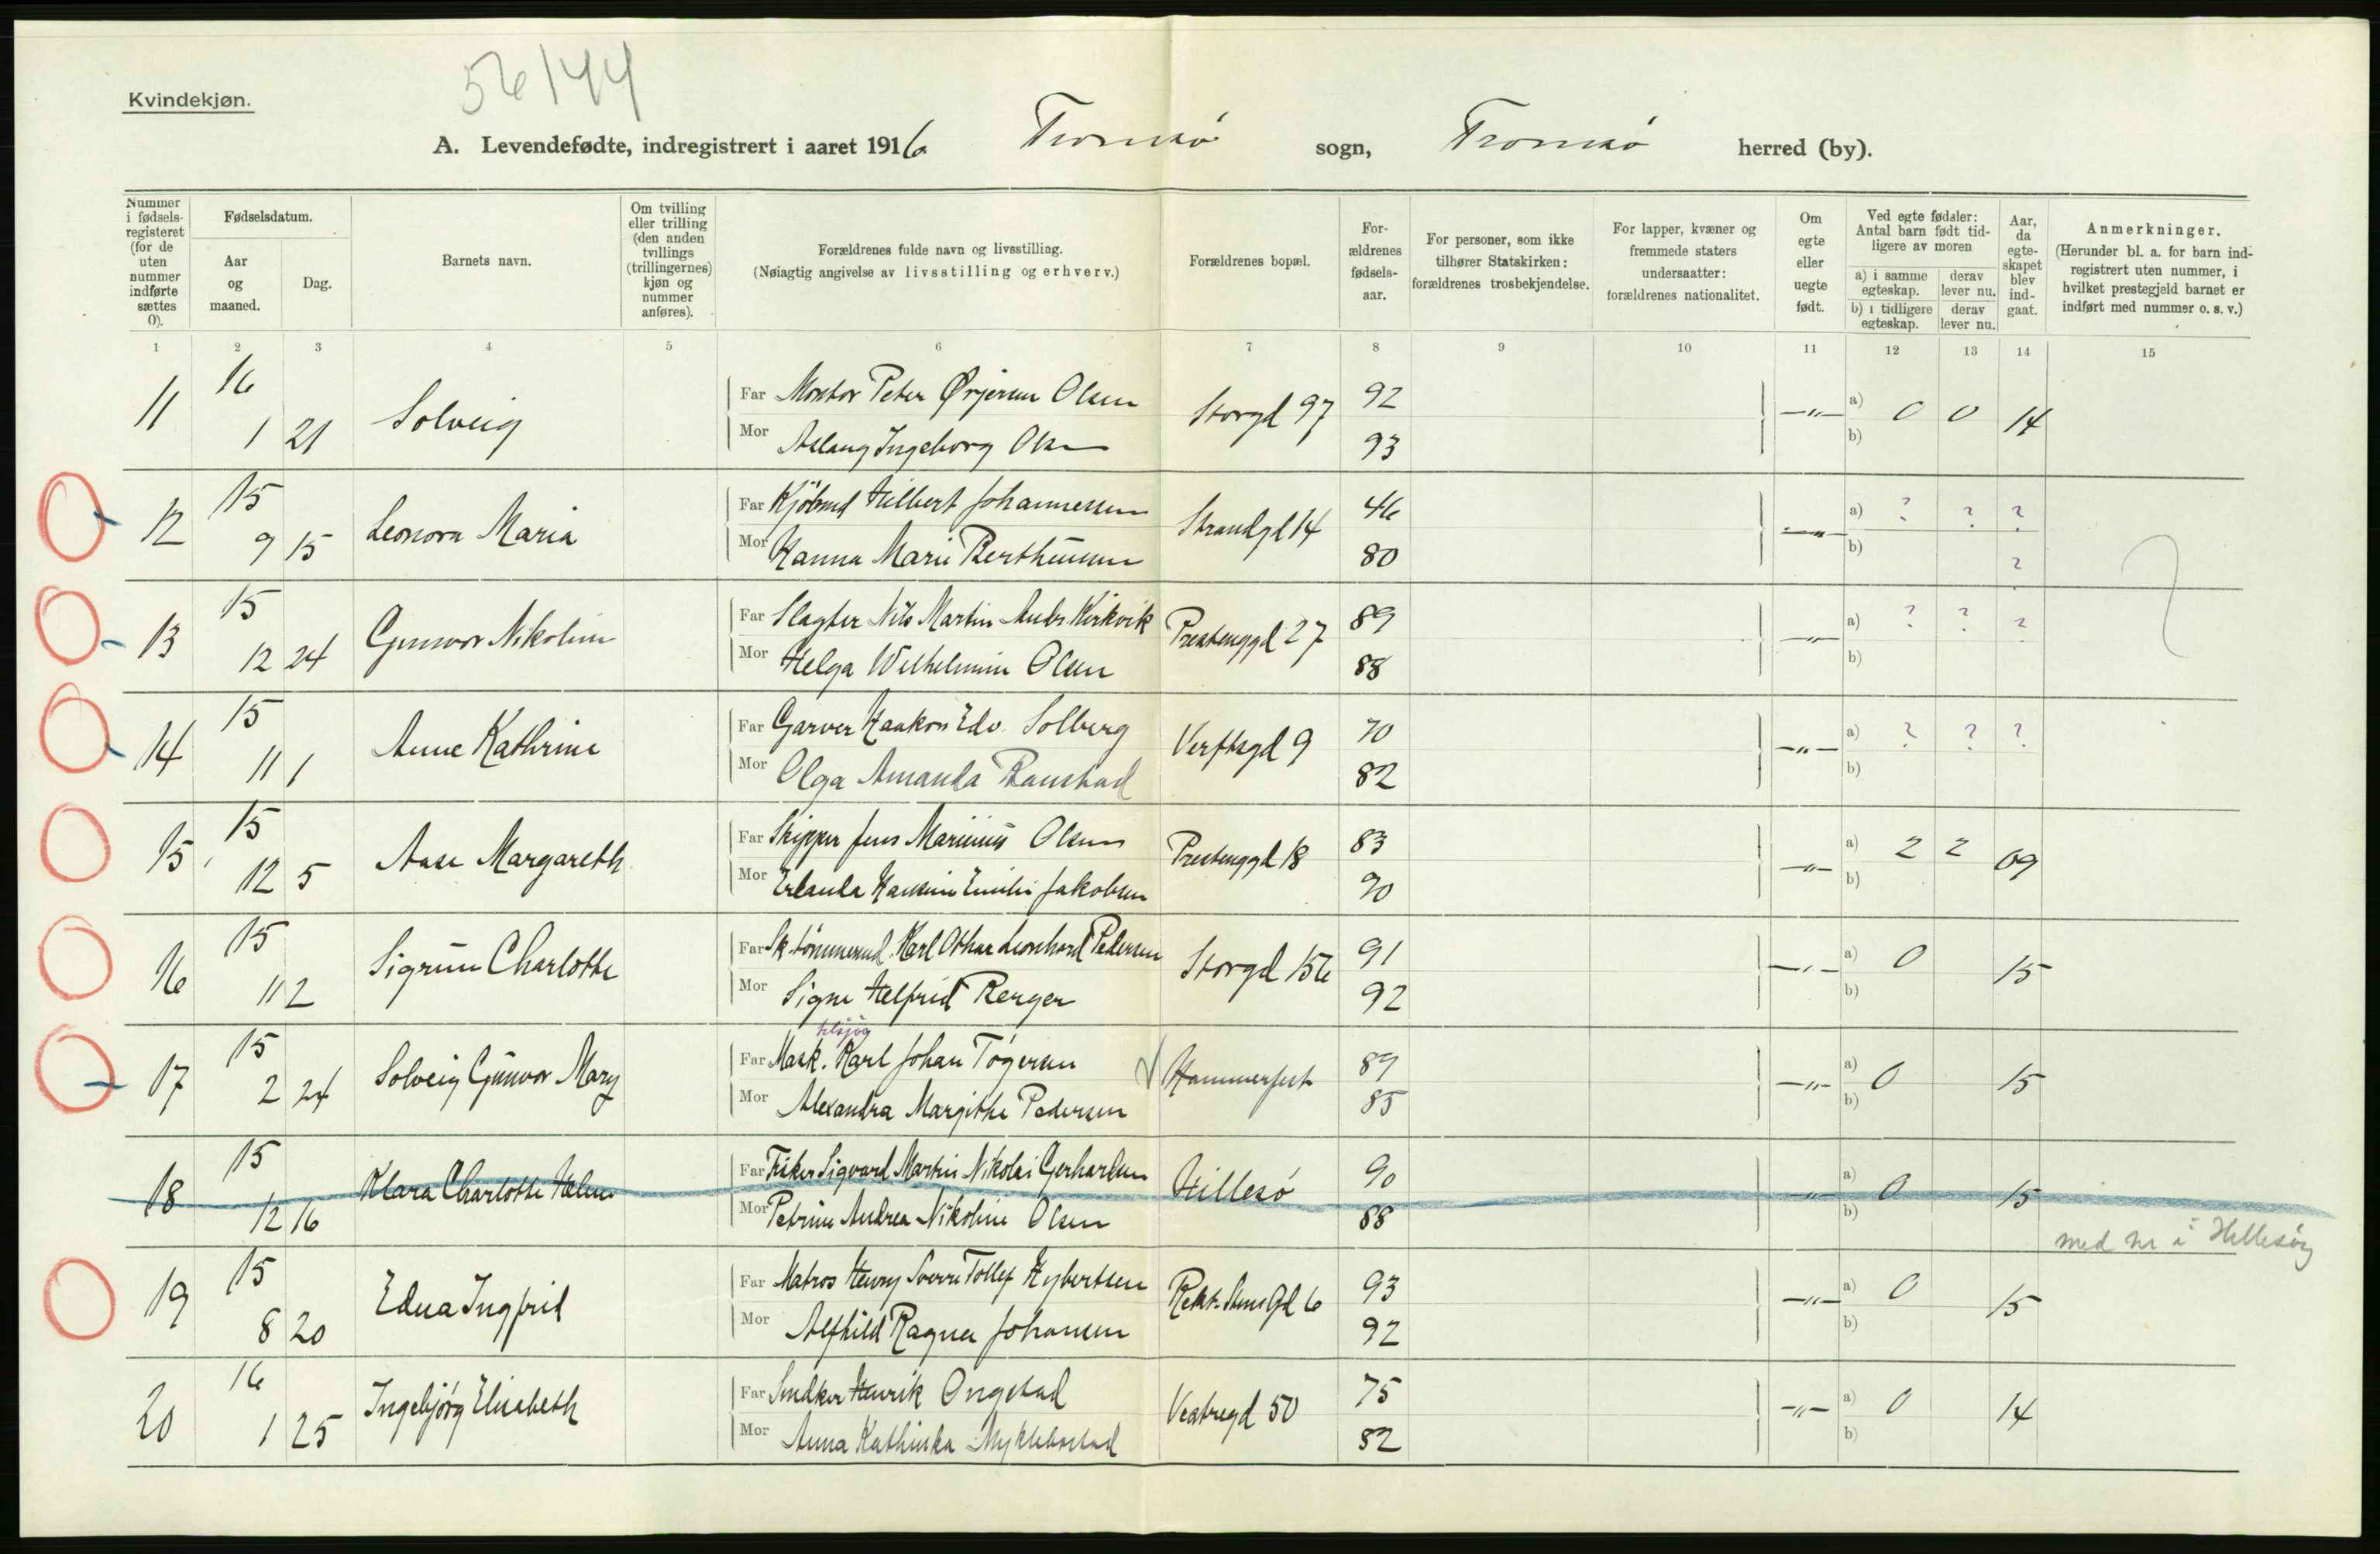 Kvindekjøn.
56/44
A. Levendefødte, indregistrert i aaret 1916 Tromsø sogn, Tromsø herred (by).
Nummer i fødselsregisteret (for de uten nummer indførte sættes 0).
Fødselsdatum.
Aar og maaned.
Dag.
Barnets navn.
Om tvilling eller trilling (den anden tvillings (trillingernes) kjøn og nummer anføres).
Forældrenes fulde navn og livsstilling.
(Nøiagtig angivelse av livsstilling og erhverv.)
Forældrenes bopæl.
Forældrenes fødselsaar.
For personer, som ikke tilhører Statskirken: forældrenes trosbekjendelse.
For lapper, kvæner og fremmede staters undersaatter: forældrenes nationalitet.
Om egte eller uegte født.
Ved egte fødsler: Antal barn født tidligere av moren
a) i samme egteskap. derav lever nu.
b) i tidligere egteskap. derav lever nu.
Aar, da egteskapet blev indgaat.
Anmerkninger.
(Herunder bl. a. for barn indregistrert uten nummer, i hvilket prestegjeld barnet er indført med nummer o. s. v.)
1 2 3 4 5 6 7 8 9 10 11 12 13 14 15
11 16 1 21 Solveig Far Montør Peter Olsen Storgd 97 92 —"— a) 0 0 14
Mor Aslaug Ingeborg Olsen 93 b)
12 15 9 15 Leonora Maria Far Kjøbmd Hilbert Johannessen Strandgd 14 46 —"— a) ? ? ?
Mor Hanna Marie Bertheussen 80 b) ?
13 15 12 24 Gunvor Nikoline Far Slagter Nils Martin Andr. Kirkvik Prestenggd 27 89 —"— a) ? ? ?
Mor Helga Wilhelmine Olsen 88 b)
14 15 11 1 Anne Kathrine Far Garver Haakon Edv. Solberg Verftsgd 9 70 —"— a) ? ? ?
Mor Olga Amanda Ranstad 82 b)
15 15 12 5 Aase Margareth Far Skipper Jens Marinius Olsen Prestenggd 18 83 —"— a) 2 2 09
Mor Erlanda Hansine Emilie Jakobsen 90 b)
16 15 11 2 Sigrun Charlotte Far Sk.tømmermd. Karl Othar Leonhard Pedersen Storgd 156 91 —"— a) 0 15
Mor Signe Helfrid Berger 92 b)
17 15 2 24 Solveig Gunvor Mary Far Mask. Karl Johan Tøgersen Hammerfest 89 —"— a) 0 15
Mor Alexandra Margithe Pedersen 85 b)
18 15 12 16 Klara Charlotte Helene Far Fisker Sigvard Martin Nikolai Gerhardsen Hillesø 90 —"— a) 0 15
Mor Petrine Andrea Nikoline Olsen 88 b)
med nr i Hillesøy
19 15 8 20 Edna Ingfrid Far Matros Henry Sverre Tollef Hybertsen Rekt. Stens Gd 6 93 —"— a) 0 15
Mor Alfhild Ragna Johansen 92 b)
20 16 1 25 Ingebjørg Elisabeth Far Snedker Henrik Ongstad Vestregd 50 75 —"— a) 0 14
Mor Anna Kathinka Myklebostad 82 b)